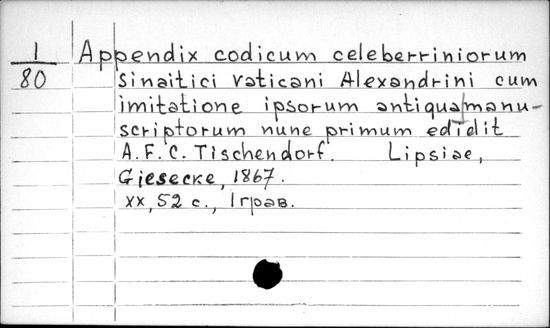 1
80
Appendix codicum celeberriniorum
Sinaitici Vaticani Alexandrini cum
imitatione ipsorum antiqua manu-
scriptorum nunc primum edidit
A. F. C. Tischendorf. Lipsiae,
Giesecke, 1867.
XX, 52 с., 1 грав.